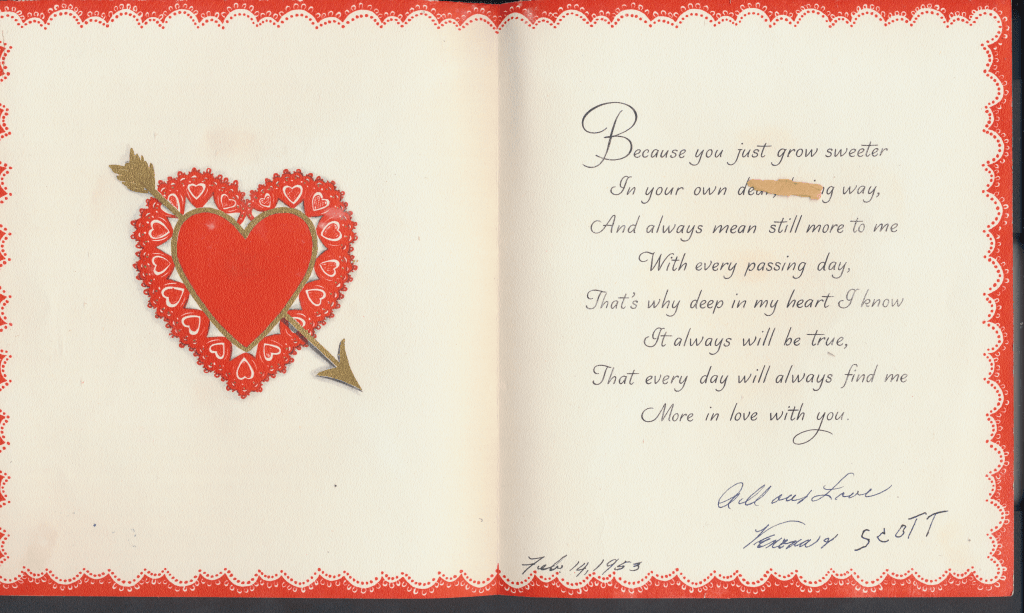 Because you just grow sweeter
In your own dear, way,
And always mean still more to me
With every passing day,
That's why deep in my heart I know
It always will be true,
That every day will always find me
More in love with you.
All our Love
Verona & SCOTT
Feb 14, 1953